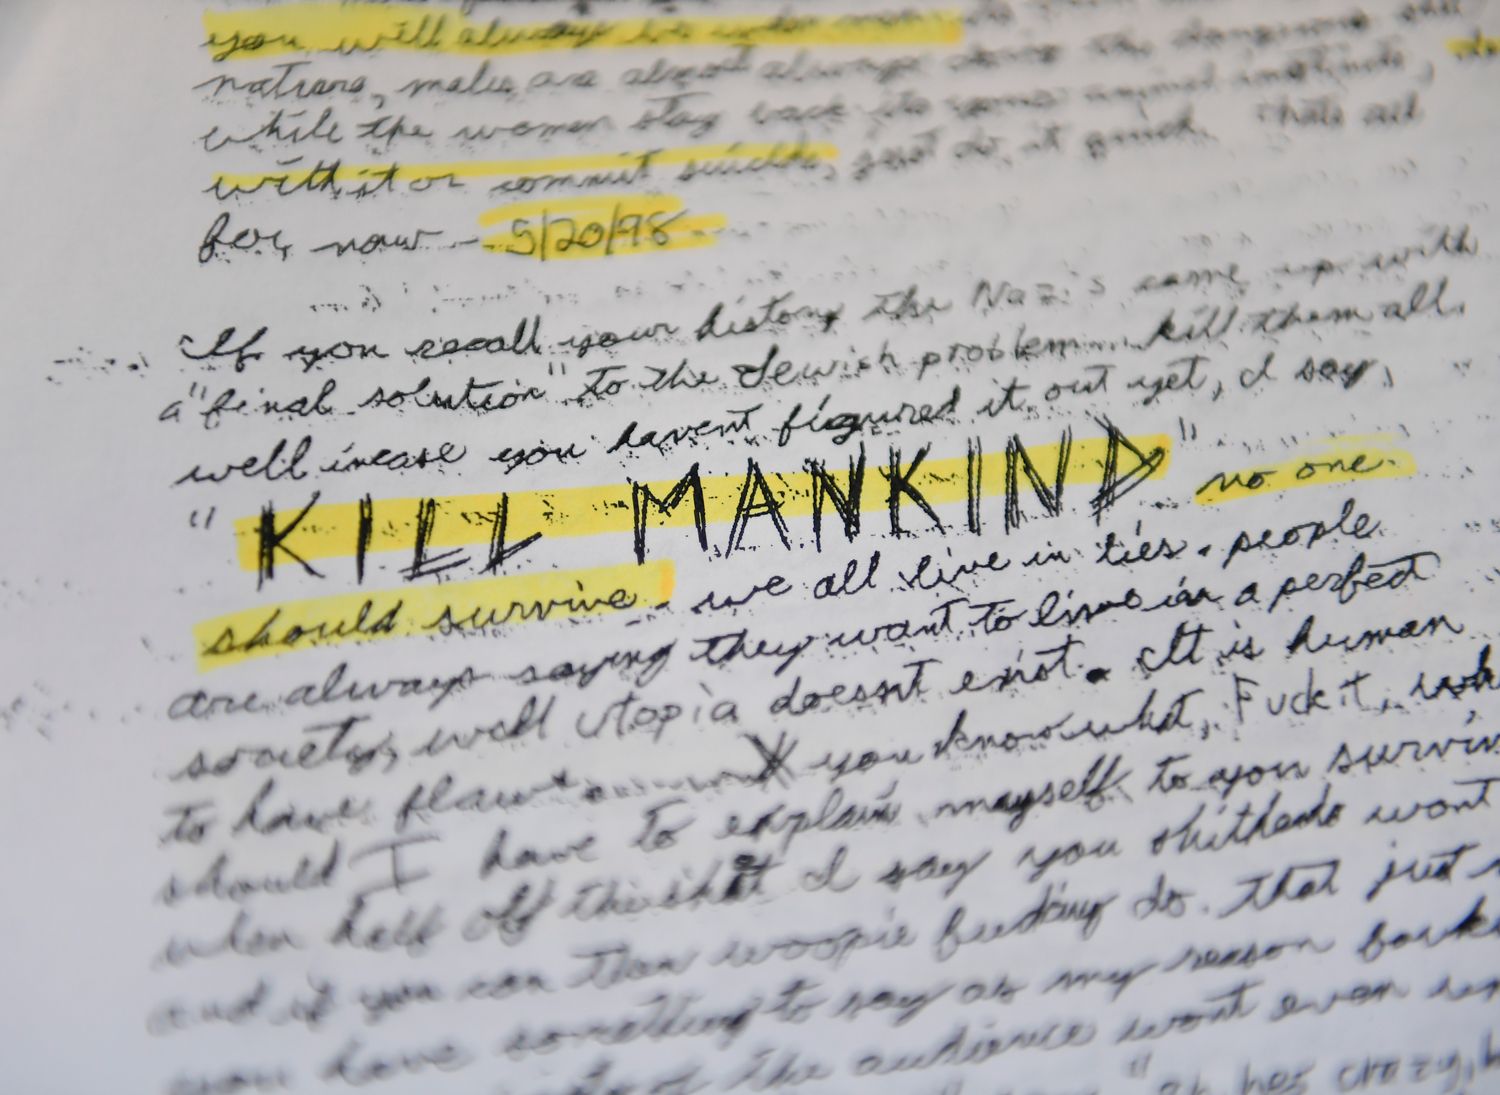 you will always be under men.
nature, males are almost always doing the dangerous shit
while the women stay back. its your animal instincts,
with it or commit suicide, just do it quick. Thats all
for now - 5/20/98
If you recall your history the Nazis came up with
a "final solution" to the Jewish problem.... kill them all.
well incase you havent figured it out yet, I say,
"KILL MANKIND" no one
should survive. we all live in lies. people
are always saying they want to live in a perfect
society, well utopia doesnt exist. It is human
to have flaws. you know what, Fuck it,
should I have to explain myself to you
when half of the shit I say you shitheads wont
and if you can then woopie fucking do. that just
you have something to say as my reason
of the audience wont even
"Oh hes crazy,